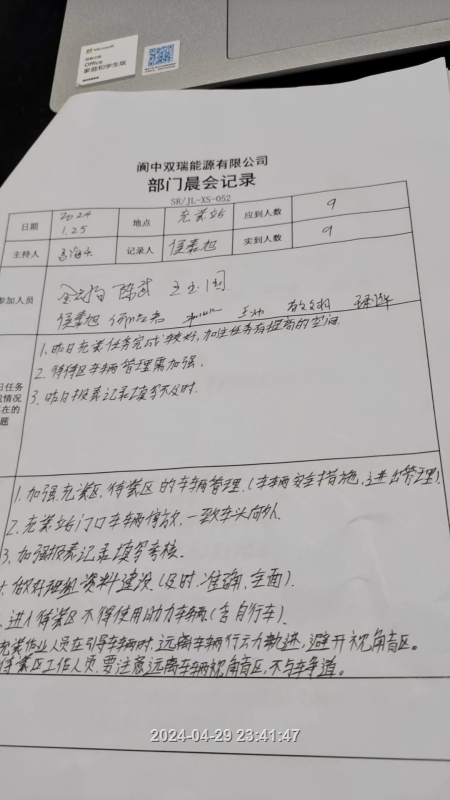 Microsoft
Office
家庭和学生版
阆中双瑞能源有限公司
部门晨会记录
SR/JL-XS-052
日期 2024 1.25 地点 充装站 应到人数 9
主持人 记录人 实到人数 9
参加人员
1.昨日充装任务完成较好,加注任务有提高的空间.
2.待装区车辆管理需加强.
3.昨日报表记录填写不及时.
日任务
情况
在的
题
1.加强充装区,待装区的车辆管理.(车辆安全措施,进出管理).
2.充装站门口车辆停放,一致车头向外.
3.加强报表记录填写考核.
做好班组资料建设(及时.准确.全面).
进入待装区不得使用助力车辆(含自行车).
充装作业人员在引导车辆时.远离车辆行动轨迹,避开视角盲区。
待装区工作人员.要注意远离车辆视角盲区,不与车争道。
2024-04-29 23:41:47